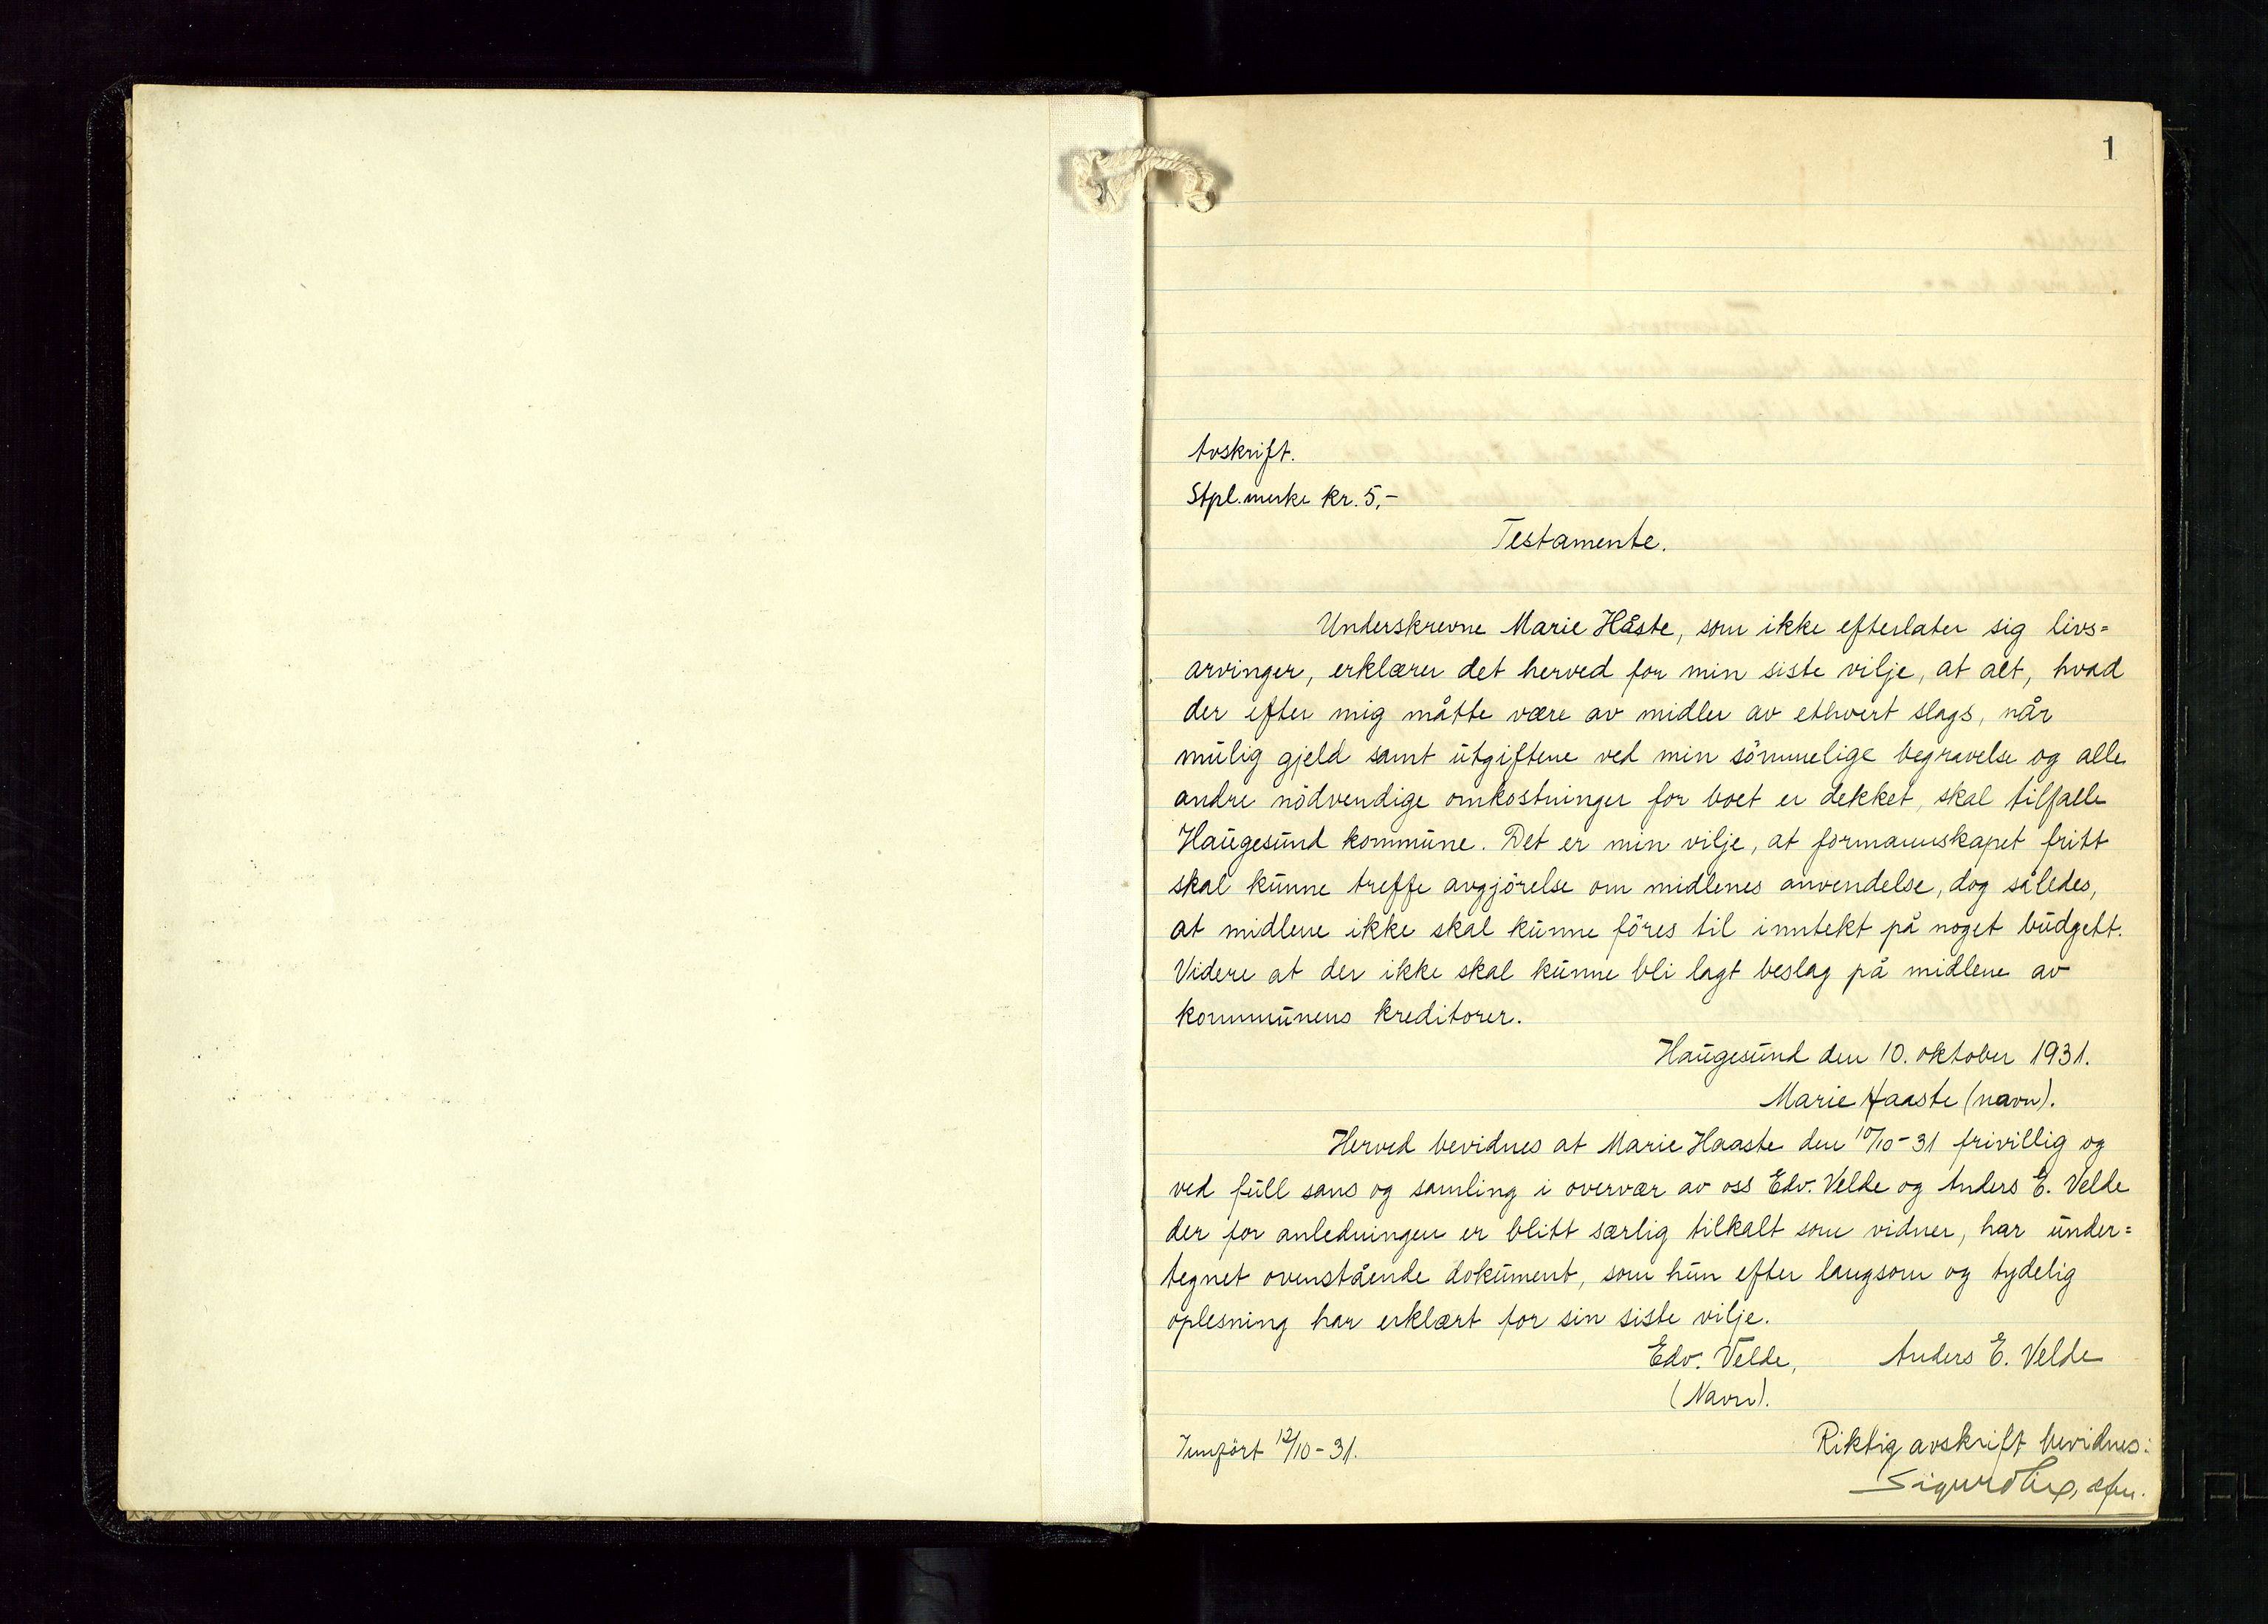 1
Avskrift.
Stpl.merke kr. 5,-
Testamente.
Underskrevne Marie Håste, som ikke efterlater sig livs=
arvinger, erklærer det herved for min siste vilje, at alt, hvad
der efter mig måtte være av midler av ethvert slags, når
mulig gjeld samt utgiftene ved min sömmelige begravelse og alle
andre nödvendige omkostninger for boet er dekket, skal tilfalle
Haugesund kommune. Det er min vilje, at formannskapet fritt
skal kunne treffe avgjörelse om midlenes anvendelse, dog således,
at midlene ikke skal kunne föres til inntekt på noget budgett.
Videre at der ikke skal kunne bli lagt beslag på midlene av
kommunens kreditorer.
Haugesund den 10. oktober 1931.
Marie Haaste (navn).
Herved bevidnes at Marie Haaste den 10/10-31 frivillig og
ved full sans og samling i overvær av oss Edv. Velde og Anders E. Velde
der for anledningen er blitt særlig tilkalt som vidner, har under=
tegnet ovenstående dokument, som hun efter langsom og tydelig
oplesning har erklært for sin siste vilje.
Edv. Velde, Anders E. Velde
(Navn).
Innfört 12/10-31.
Riktig avskrift bevidnes:
Sigurd